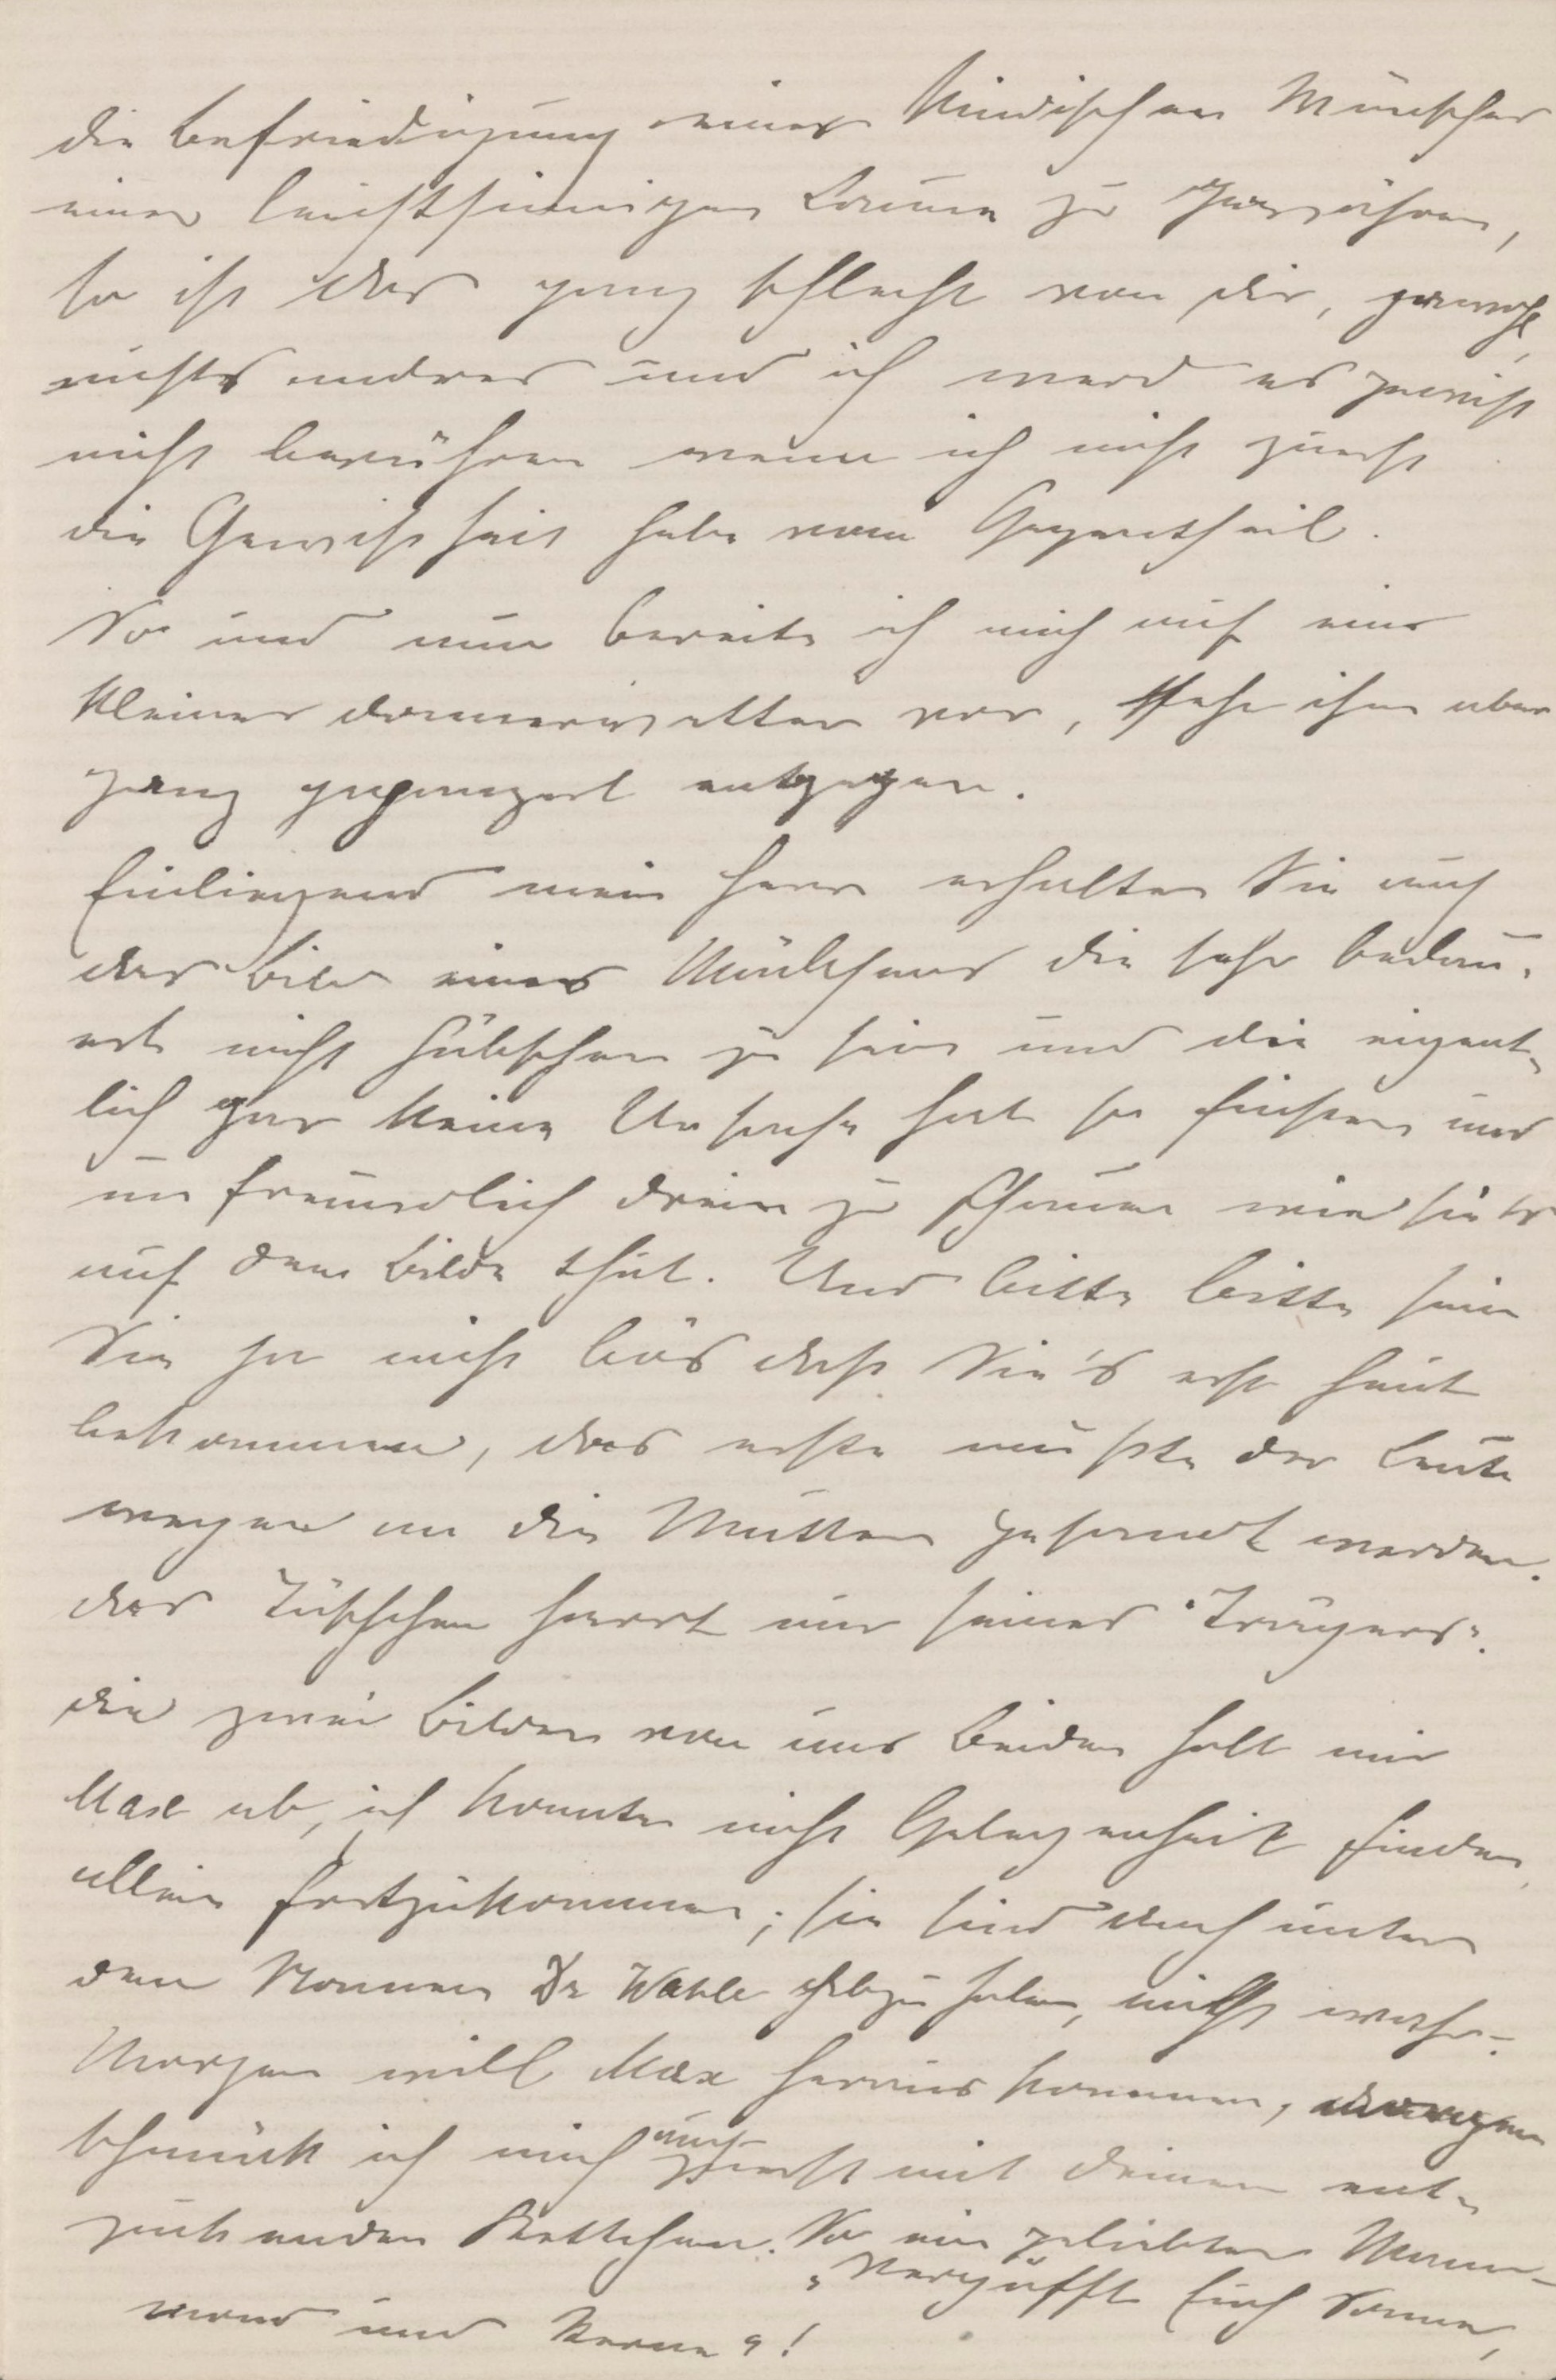 die Befriedigung eines kindischen Wunsches
einer leichtsinnigen Laune zu gewähren,
so ist das ganz schlecht von dir, jawohl,
nichts andres und ich werd es gewiß
nicht berühren wenn ich nicht zuerst
die Gewissheit habe vom Gegentheil.
So und nun bereite ich mich auf ein
kleines Donnerwetter vor, stehe ihm aber
ganz gepanzert entgegen.
Einliegend mein Herr erhalten Sie auch
das Bild eines Mädchens die sehr bedau-
ert nicht hübscher zu sein und die eigent-
lich gar keine Ursache hat so finster und
unfreundlich drein zu schauen wie sie es
auf dem Bilde thut. Und bitte bitte sein
Sie ja nicht bös dass Sie's erst heut
bekommen, das erste mußte der Leute
wegen an die Mutter gesandt werden.
das Täschchen harrt nur seines "Trägers".
die zwei Bilder von uns beiden holt mir
Max ab, ich konnte nicht Gelegenheit finden
allein fortzukommen; sie sind doch unter
dem Namen Dr Wahle abzuholen, nicht wahr?
Morgen will Max heraus kommen,
schmück ich mich auch zuerst mit deinem ent-
zückenden Kettchen. So ein geliebter Mann
"Vergafft Euch Sonne,
Mond und Sterne"!